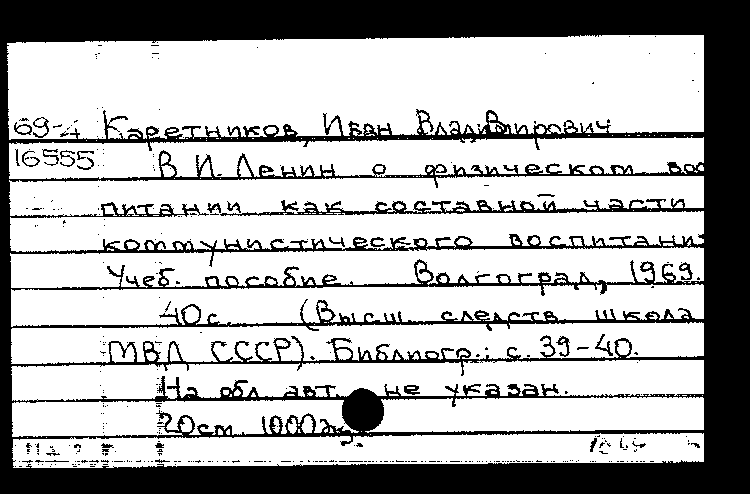 69-4 Каретников, Иван Владимирович
16555 В. И. Ленин о физическом вос
питании как составной части
коммунистического воспитания
Учеб. пособие. Волгоград, 1969.
40 с. (Высш. следств. школа
МВД СССР). Библиогр.: с. 39-40.
На обл. авт. не указан.
20 см. 1000 экз.